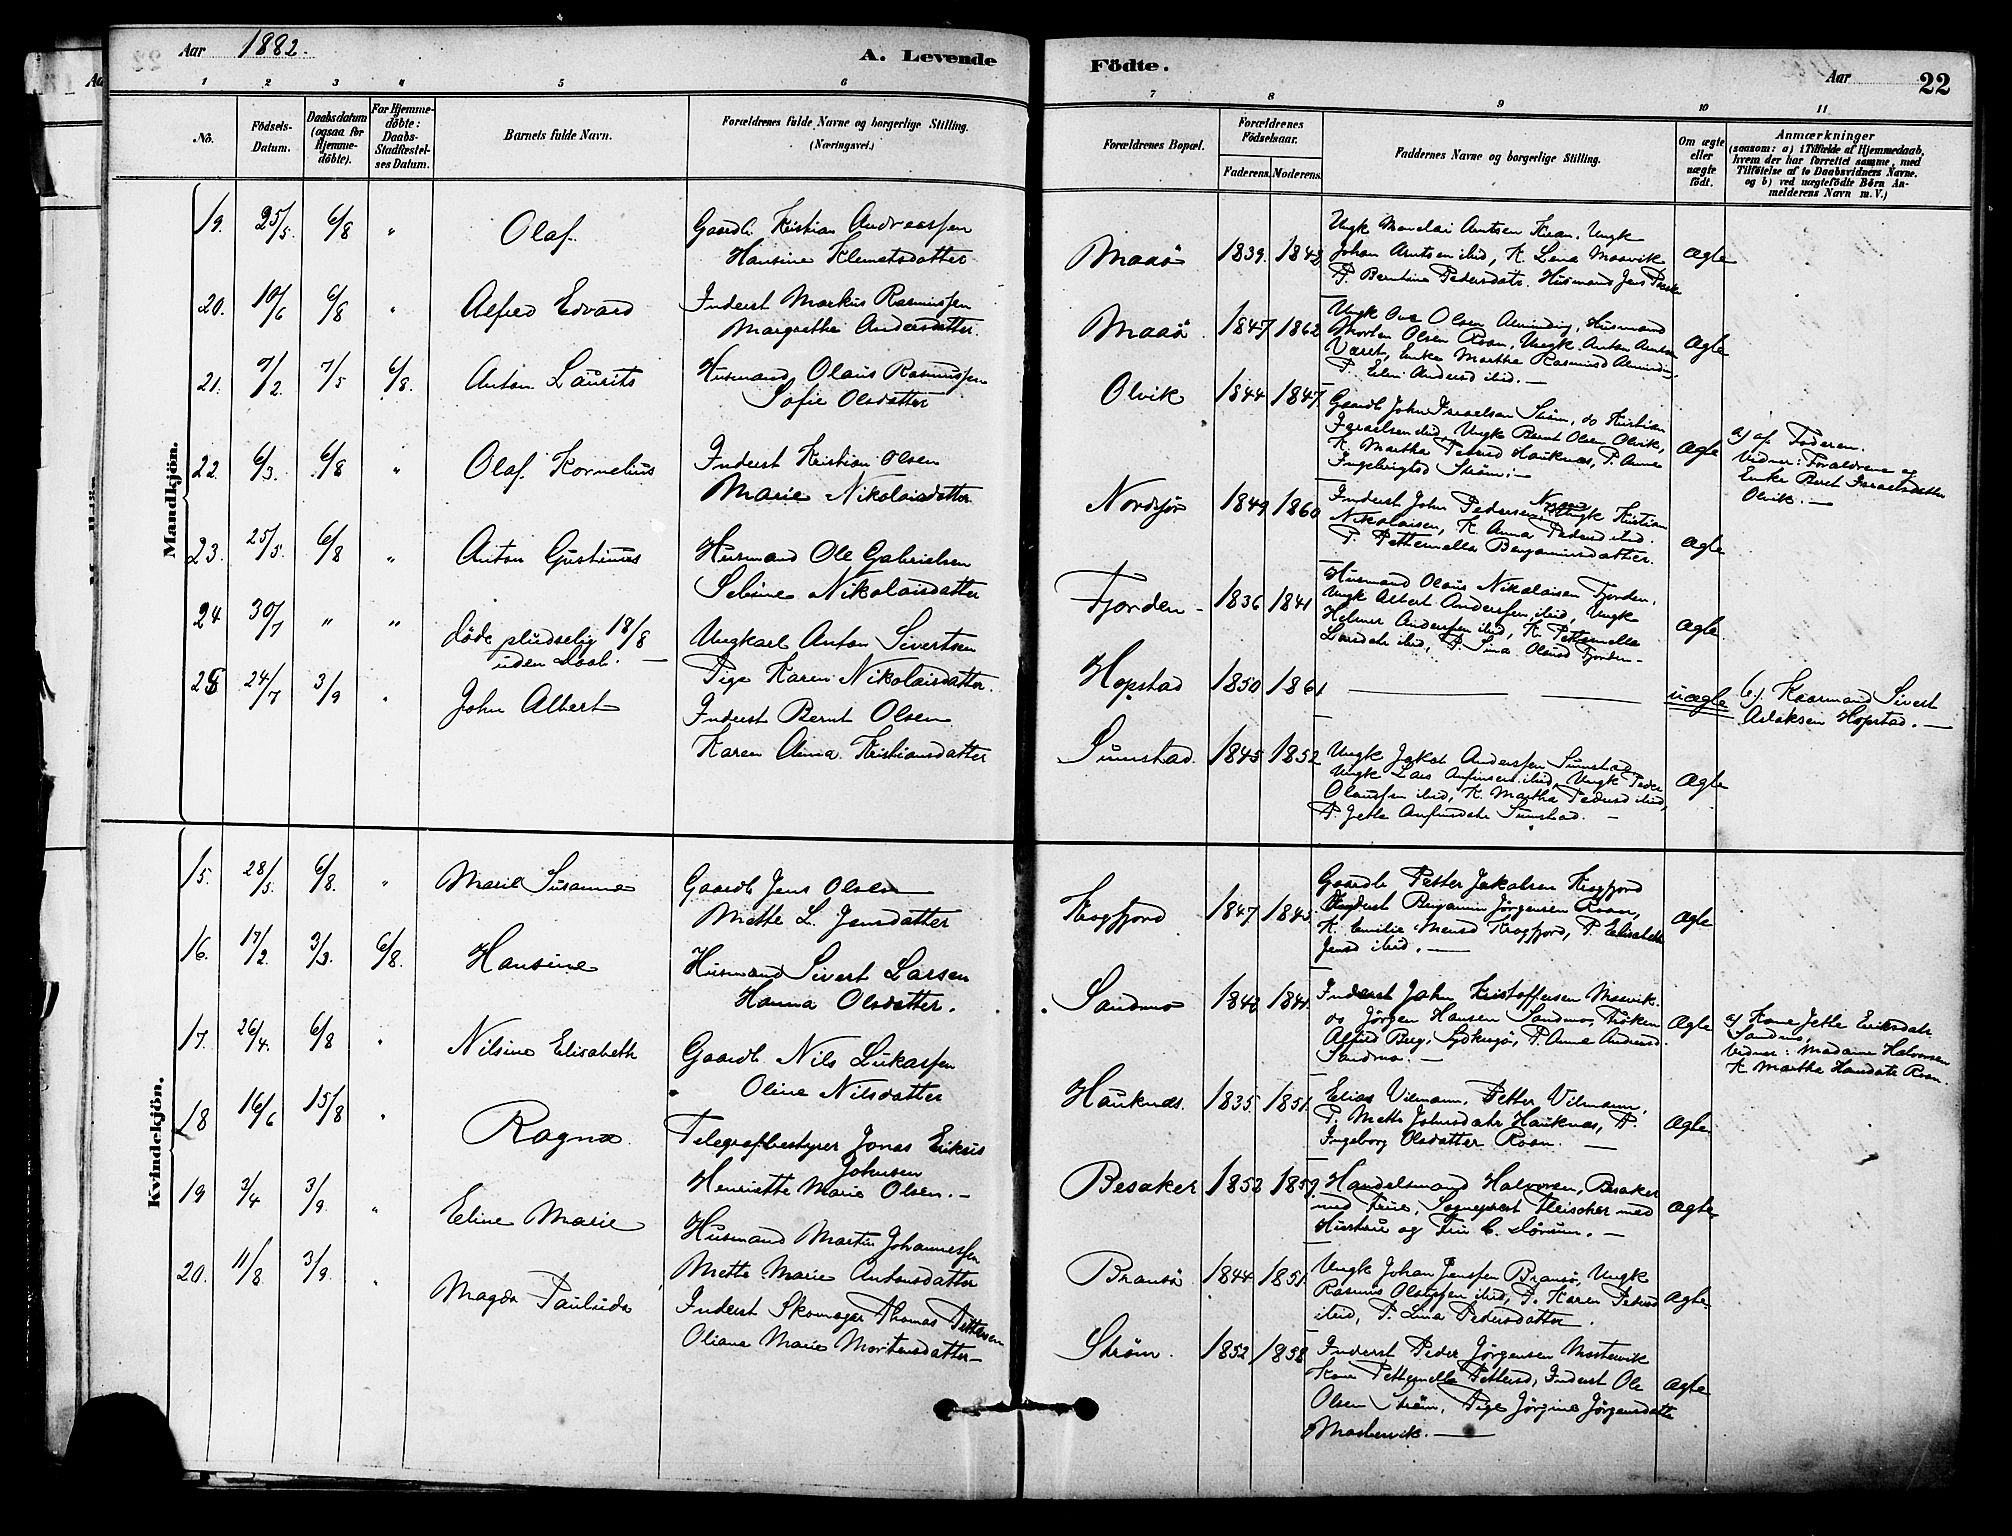 Aar 1882.
A. Levende
Födte.
Aar
22
1 2 3 4 5 6
7 8 9 10 11
No.
Födsels-
Datum.
Daabsdatum
(ogsaa for
Hjemme-
döbte).
For Hjemme-
döbte:
Daabs-
Stadfæstel-
ses Datum.
Barnets fulde Navn.
Forældrenes fulde Navne og borgerlige Stilling.
(Næringsvei.)
Forældrenes Bopæl.
Forældrenes
Födselsaar.
Faderens. Moderens.
Faddernes Navne og borgerlige Stilling.
Om ægte
eller
uægte
födt.
Anmærkninger
(saasom: a) i Tilfælde af Hjemmedaab,
hvem der har forrettet samme, med
Tilföielse af to Daabsvidners Navne.
og b) ved uægtefödte Börn An-
melderens Navn m. V.)
Mandkjön.
19. 25/5. 6/8 " Olaf. Gaardb. Kristian Andreassen
Hansine Klemetsdatter
Maaö 1839. 1842 Ungk Mandai Arntsen Kiran. Ungk
Johan Arntsen ibid, K. Lena Maavik
P. Berntine Pedersdatr. Husmand Jens
Ægte
20. 10/6 6/8 " Alfred Edvard Inderst Markus Rasmussen
Margrethe Andersdatter.
Maaö 1847 1862 Ungk Ove Olsen Alminding, Husmand
Morten Olsen Roan, Ungk Anton
Været, Enke Martha Rasmusd Alminding,
P. Elen Andersd ibid. —
Ægte
21. 7/2. 7/5 6/8. Anton Laurits Husmand Olaus Rasmussen
Sofie Olsdatter
Olvik 1844 1847 Gaardb John Israelsen Ström, do Kristian
Israelsen ibid, Ungk Bernt Olsen Olvik,
K. Martha Pedersd Hauknæs, P. Anne
Ingebrigtsd Ström. —
Ægte
a) af Faderen.
Vidner: Forældrene og
Enke Beret Israelsdatter
Olvik. —
22. 6/3. 6/8 " Olaf Kornelius Inderst Kristian Olsen
Marie Nikolaisdatter
Nordsjö 1849 1860 Inderst John Pedersen Ungk Kristian
Nikolaisen, K. Anna Pedersd ibid.
P. Petternella Benjaminsdatter.
Ægte
23. 25/5. 6/8 " Anton Gustinus Husmand Ole Gabrielsen
Sebine Nikolaisdatter
Fjorden - 1836 1841 Husmand Olaus Nikolaisen Fjorden,
Ungk Albert Anderssen ibid, Ungk
Helmer Anderssen ibid, K. Petternella
Larsdatr ibid, P. Sina Olausd Fjorden -
Ægte.
24 30/7 " " döde pludselig 18/8
uden Daab. —
Ungkarl Anton Sivertsen
Pige Karen Nikolaisdatter.
Hopstad 1850 1861 — — uægte b). Kaarmand Sivert
Aslaksen Hopstad. —
25 24/7 3/9 " John Albert Inderst Bernt Olsen
Karen Anna Kristiansdatter
Sumstad. 1845 1852 Ungk Jakob Anderssen Sumstad
Ungk Lars Anfinsen ibid, Ungk Peder
Olaussen ibid, K. Martha Pedersd ibid,
P. Jette Anfinsdatr Sumstad. —
Ægte
Kvindekjön.
15. 28/5. 6/8. " Marie Susanna Gaardb Jens Olsen
Mette L. Jensdatter
Krogfjord 1847 1845 Gaardb Petter Jakobsen Krogfjord
Inderst Benjamin Jörgensen Roan,
K. Emilie Mensd Krogfjord, P. Elisabeth
Jensd ibid. —
Ægte
16. 17/2. 3/3. 6/8. Hansine Husmand Sivert Larsen
Hanna Olsdatter.
Sandmo 1842 1841. Inderst John Kristoffersen Maavik.
do Jörgen Hansen Sandmo, Fröken
Alfred Berg, P. Anne Andersd.
Sandmo. —
Ægte
a) Kone Jette Eriksdatr
Sandmo,
Vidner: Madame Halvorsen
K. Martha Hansdatr Roan.
17. 26/4. 6/8 " Nilsine Elisabeth Gaardb Nils Lukassen
Oline Nilsdatter
Hauknæs. 1835 1851. Elias Vilmann, Petter Vilmann,
P. Mette Johnsdatr Hauknæs, P.
Ingeborg Olsdatter Roan. —
Ægte
18 16/6 15/8 " Ragna Telegrafbestyrer Jonas Eriksen
Johnsen
Henriette Marie Olsen. —
Besaker 1853 1859. Handelsmand Halvorsen, Besaker
med Frue, Sogneprest Fleischer med
Hustru og Frk C. Sörum. —
Ægte
19 3/4 3/9. " Eline Marie Husmand Martin Johannessen
Mette Marie Antonsdatter
Bransö 1844 1851. Ungk Johan Jenssen Bransö, Ungk
Rasmus Olaussen ibid, P. Karen Pedersd
ibid, P. Lina Pedersdatter.
Ægte
20. 11/8 3/9. " Magda Paulinda Inderst Skomager Thomas Pettersen
Oliana Marie Mortensdatter —
Ström. 1852 1858 Inderst Peder Jörgensen Mastervik
Kone Petternella Pettersd, Inderst Ole
Olsen Ström, Pige Jörgine Jörgensdatr
Mastervik. —
Ægte